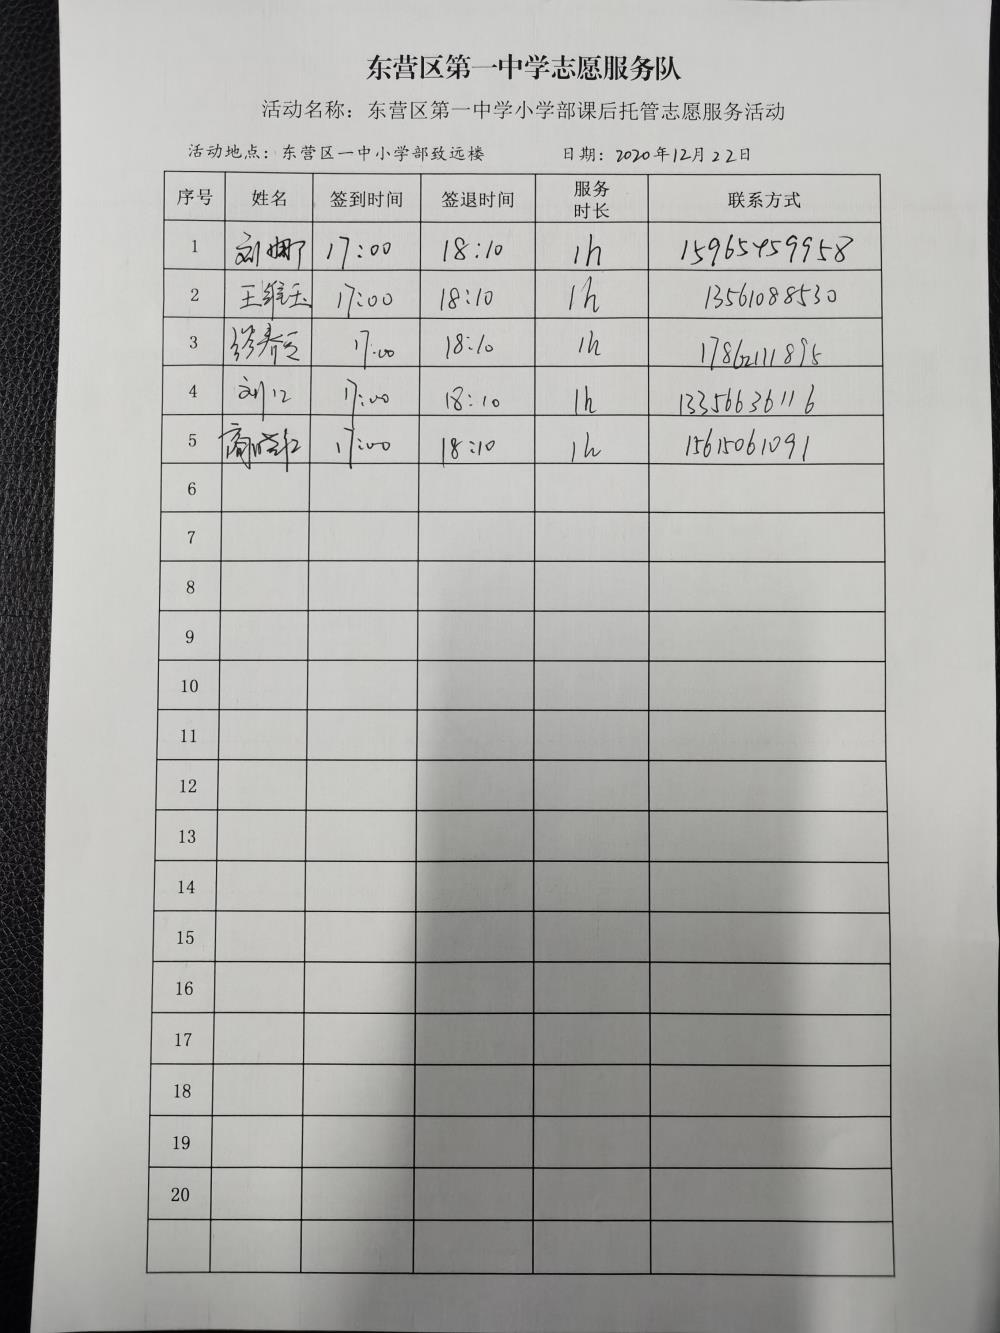 东营区第一中学志愿服务队
活动名称：东营区第一中学小学部课后托管志愿服务活动
活动地点：东营区一中小学部致远楼 日期：2020年12月22日
序号 姓名 签到时间 签退时间 服务时长 联系方式
1 刘娜 17:00 18:10 1h 15965459958
2 王维玉 17:00 18:10 1h 13561088530
3 17:00 18:10 1h 17862111895
4 刘江 17:00 18:10 1h 13356636116
5 商晓红 17:00 18:10 1h 15615061091
6
7
8
9
10
11
12
13
14
15
16
17
18
19
20